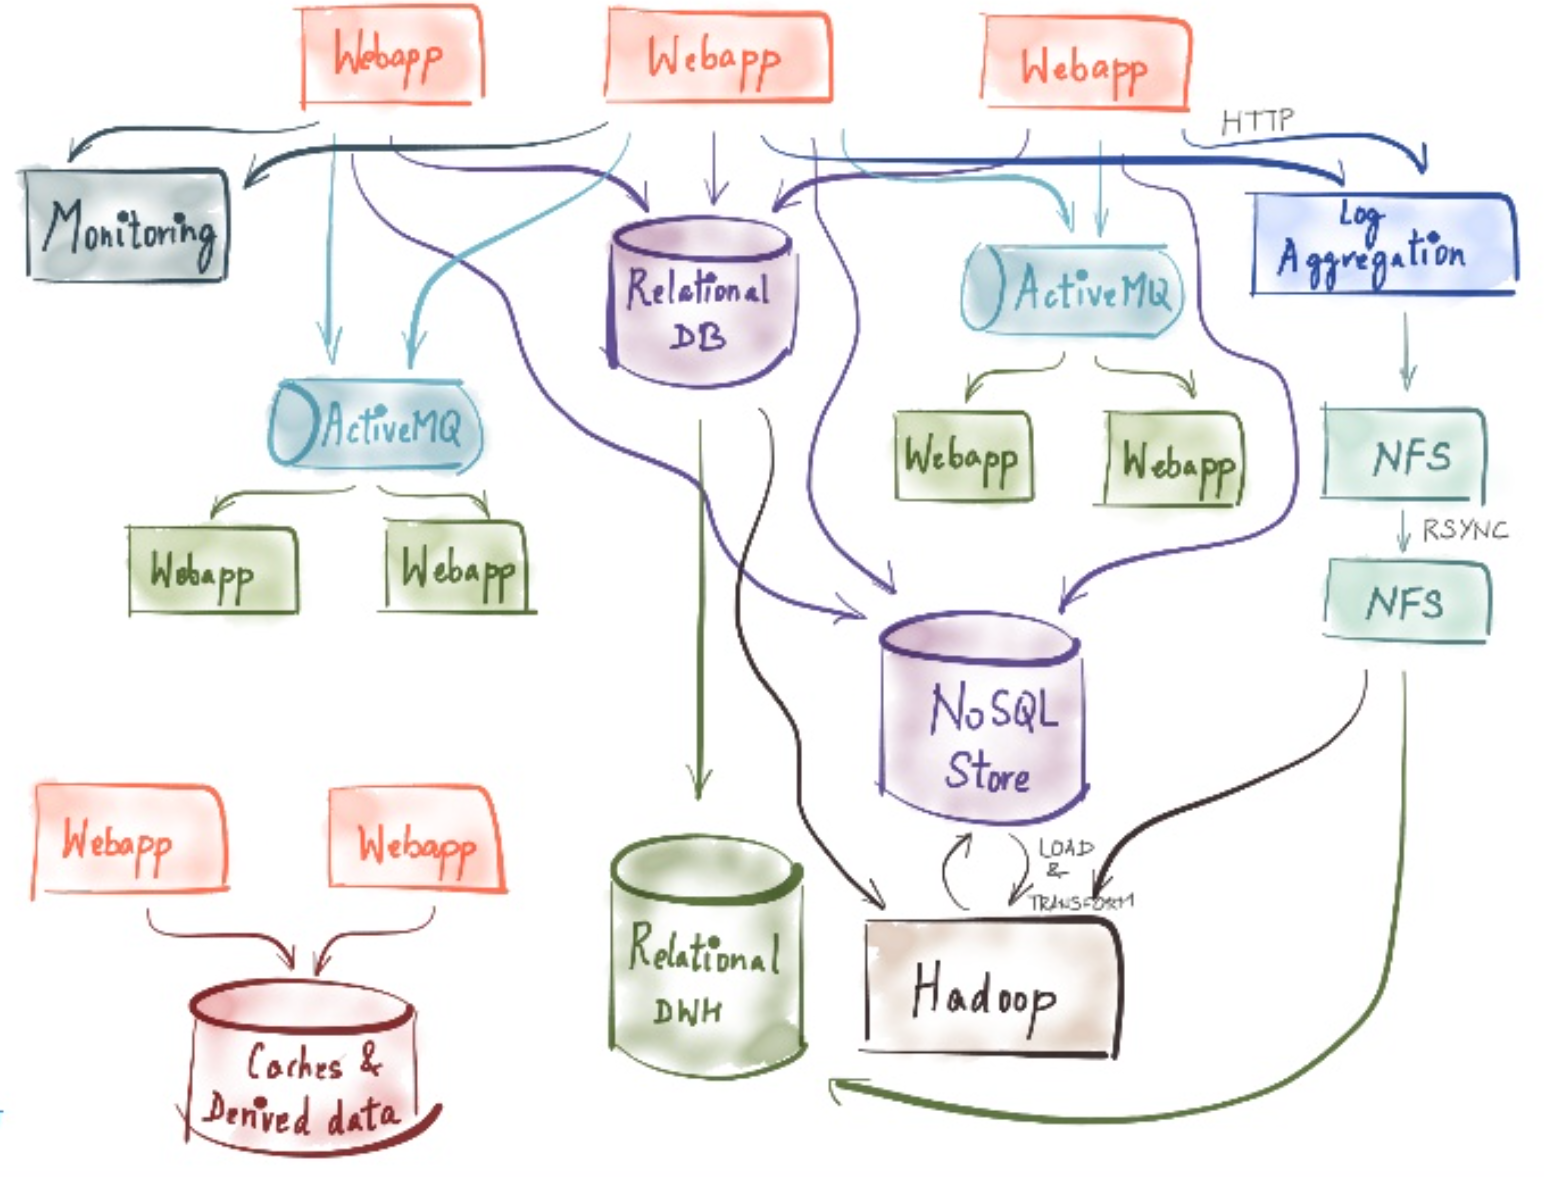 Webapp
Webapp
Webapp
HTTP
Monitoring
Log
Aggregation
Relational
DB
ActiveMQ
ActiveMQ
Webapp
Webapp
NFS
RSYNC
Webapp
Webapp
NFS
NoSQL
Store
Webapp
Webapp
LOAD
&
TRANSFORM
Relational
DWH
Hadoop
Caches &
Derived data